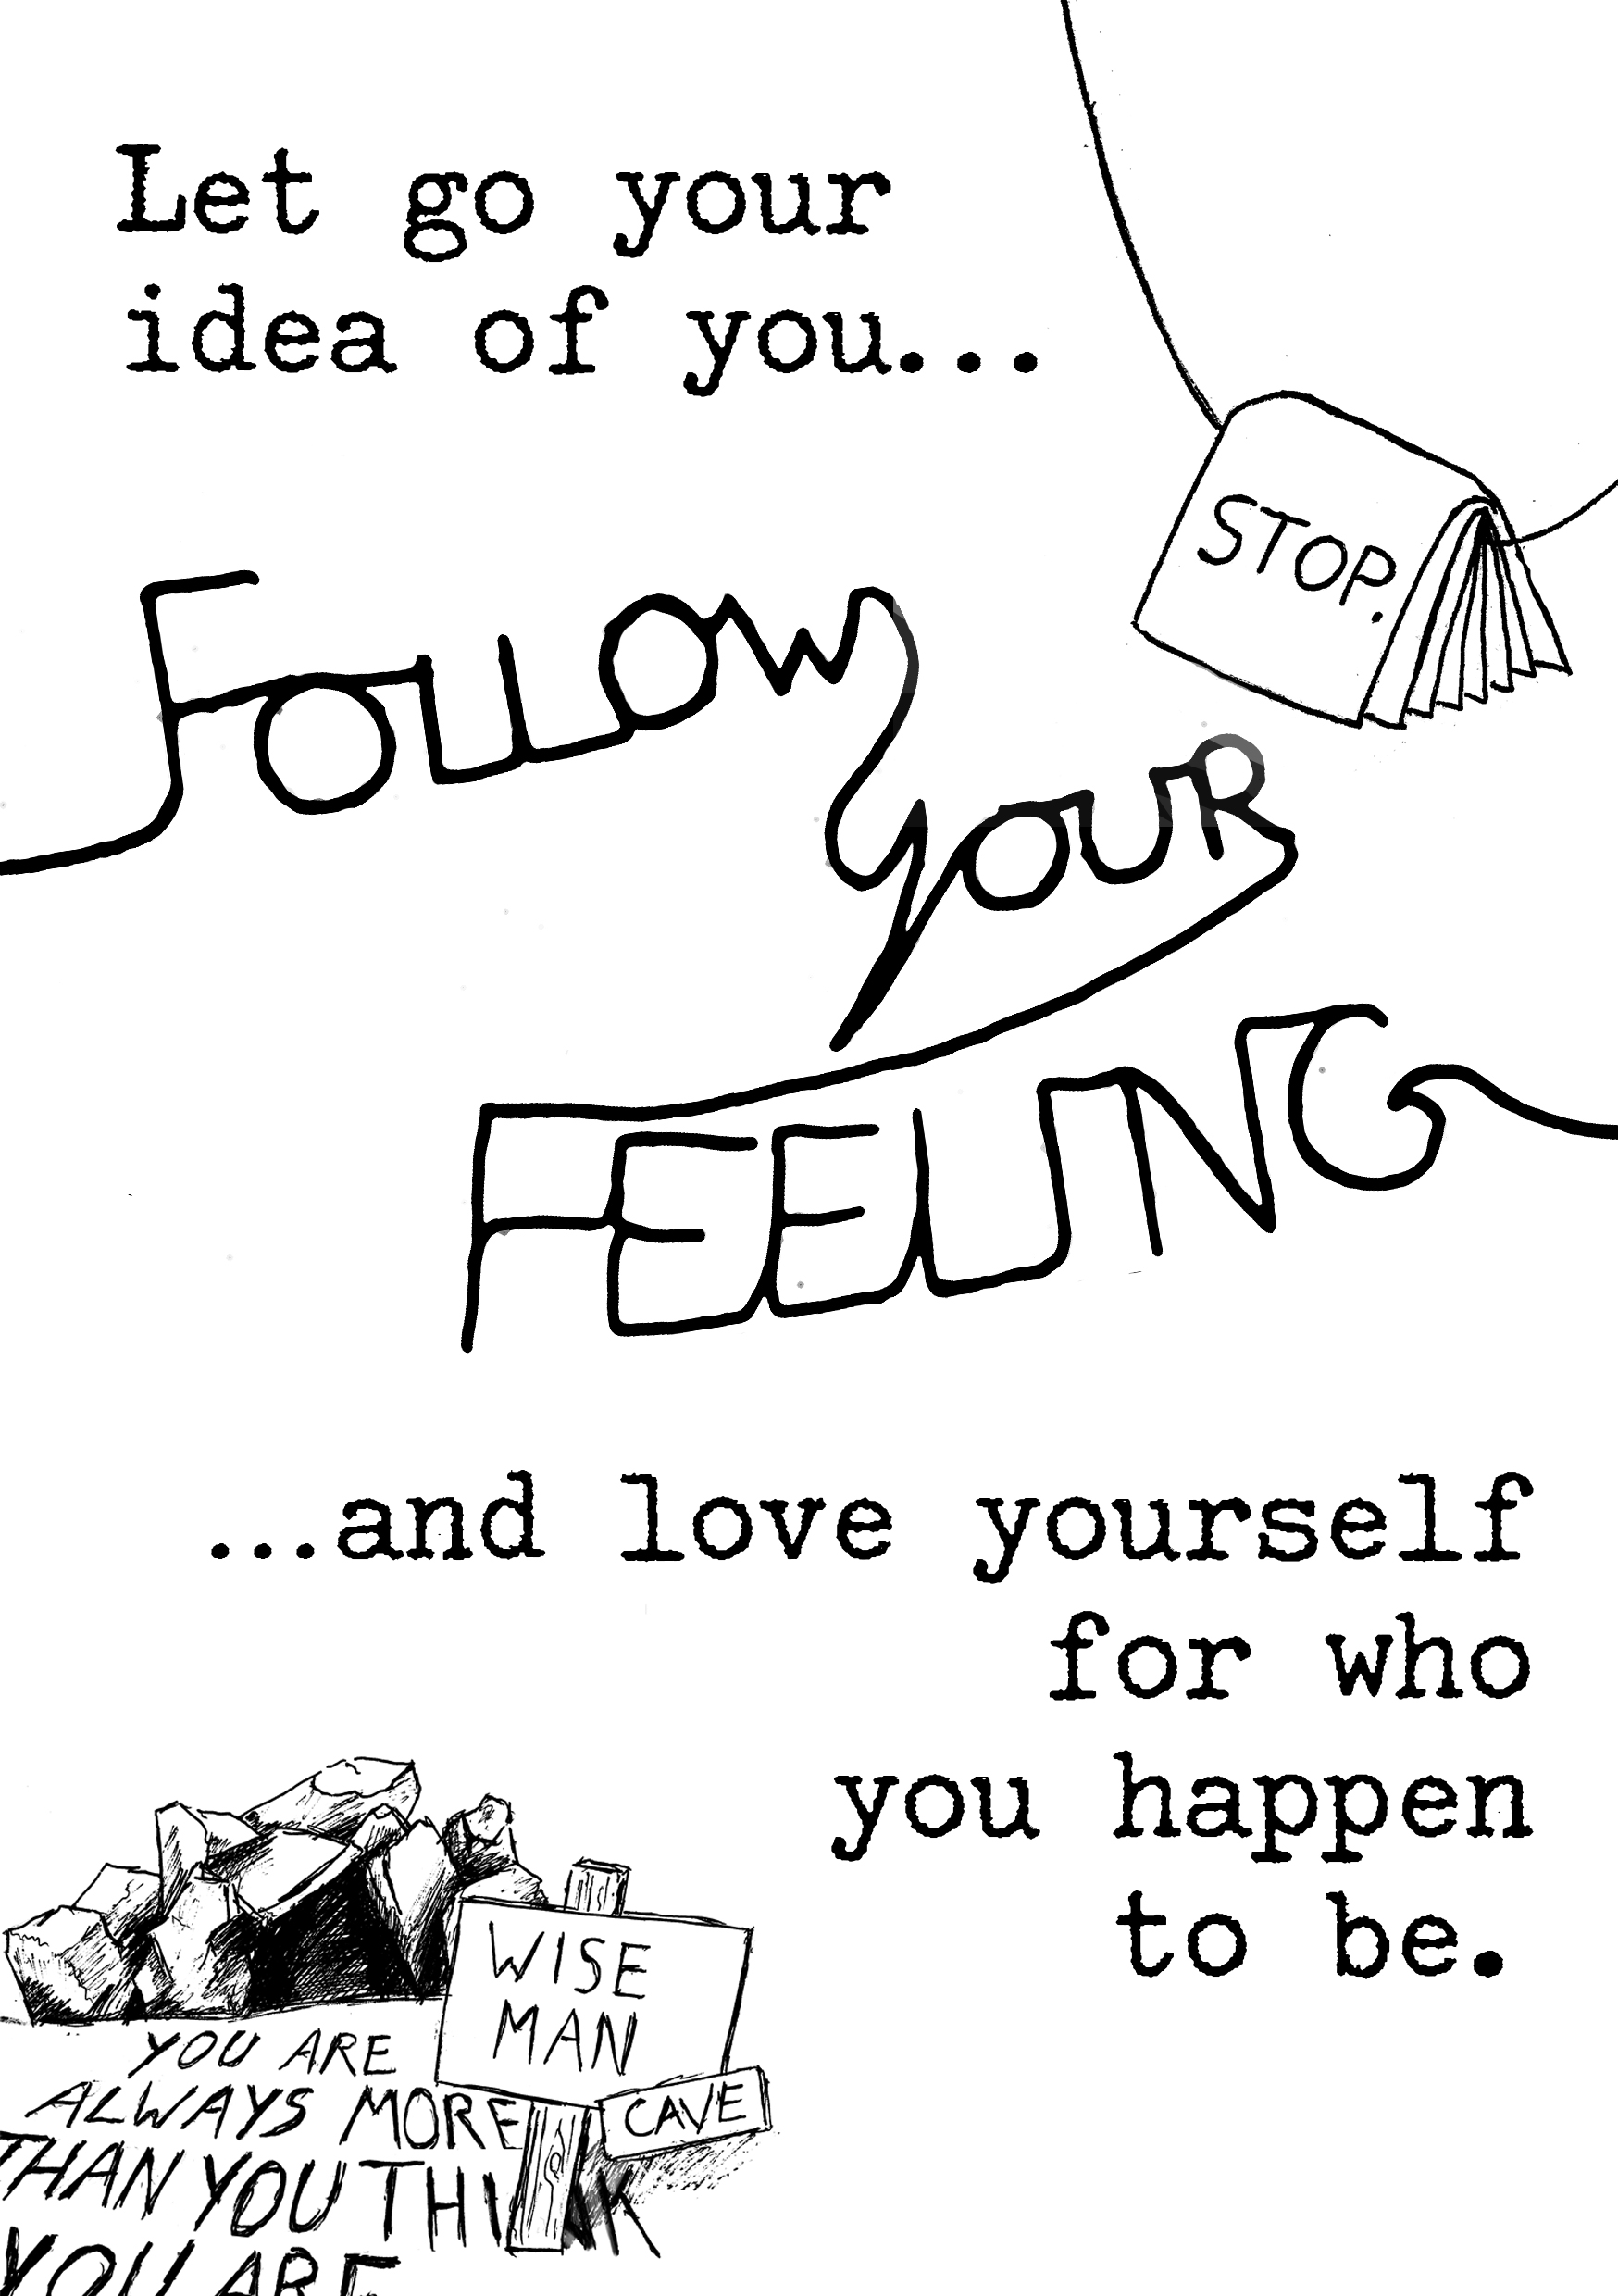 Let go your
idea of you...
STOP.
FOLLOW
YOUR
FEELING
...and love yourself
for who
you happen
to be.
WISE
MAN
CAVE
YOU ARE
ALWAYS MORE
THAN YOU THINK
YOU ARE